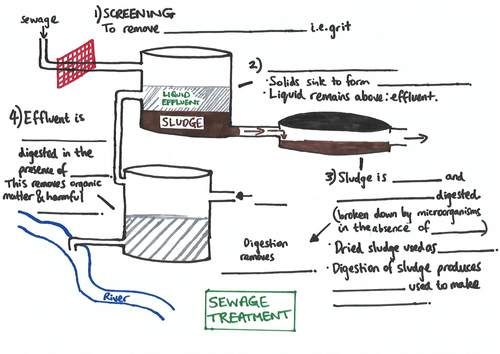 1) SCREENING
To remove ____________ i.e. grit
sewage
2) ____________
· Solids sink to form ____________
· Liquid remains above: effluent.
LIQUID
EFFLUENT
SLUDGE
3) Sludge is ______ and
____________ digested
(broken down by microorganisms
in the absence of ______)
· Dried sludge used as ______
· Digestion of sludge produces
____________ used to make
____________.
4) Effluent is
____________
digested in the
presence of ______.
This removes organic
matter & harmful
____________.
____
Digestion
removes
____________
River
SEWAGE
TREATMENT